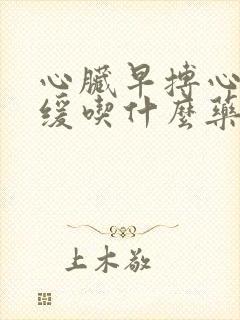 心臟早搏心
緩喫什麼藥
上木敬